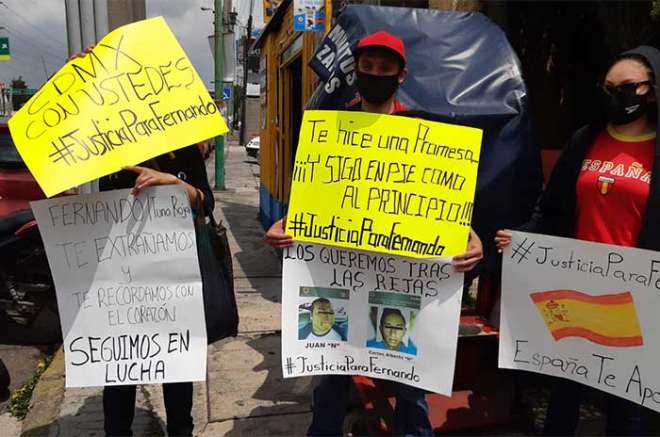 CDMX
CON USTEDES
#JusticiaParaFernando
TE EXTRAÑAMOS
Y
TE RECORDAMOS CON
EL CORAZÓN
SEGUIMOS EN
LUCHA
Te hice una Promesa
¡¡¡Y SIGO EN PIE COMO
AL PRINCIPIO!!!
#JusticiaParaFernando
LOS QUEREMOS TRAS
LAS REJAS
JUAN "N"
Carlos Alberto "N"
#JUSTICIAPARAFERNANDO
ESPAÑA
#JusticiaParaF
España Te Apo